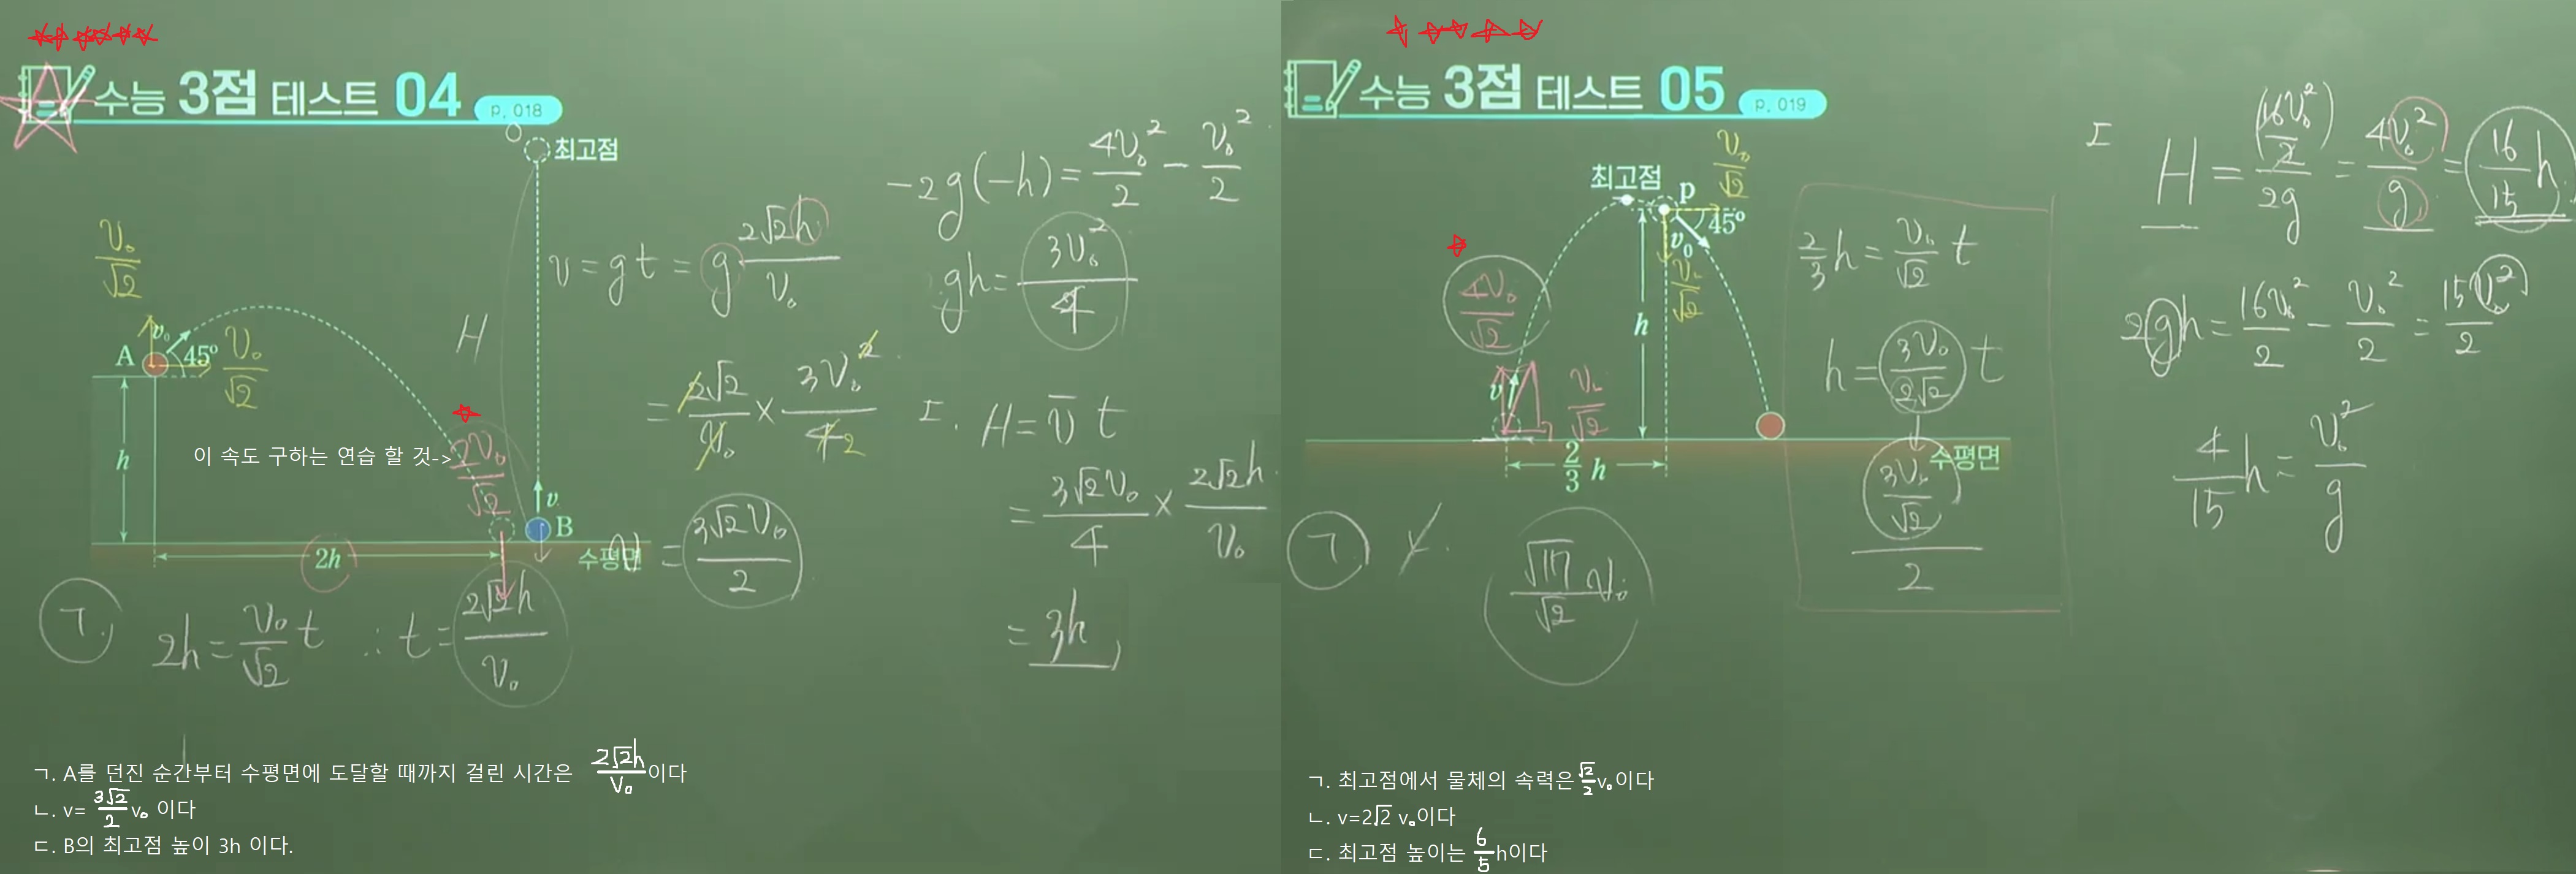 수능 3점 테스트 04 p. 018
최고점
v₀/√2
A v₀ 45° v₀/√2
h
H
이 속도 구하는 연습 할 것->
2v₀/√2
v
B
2h
수평면
v = gt = g 2√2h/v₀
= 2√2/v₀ × 3v₀²/4 2
v = 3√2v₀/2
-2g(-h) = 4v₀²/2 - v₀²/2
gh = 3v₀²/4
ㄷ. H = v̄ t
= 3√2v₀/4 × 2√2h/v₀
= 3h
ㄱ. 2h = v₀/√2 t ∴ t = 2√2h/v₀
ㄱ. A를 던진 순간부터 수평면에 도달할 때까지 걸린 시간은 2√2h/v₀이다
ㄴ. v= 3√2/2 v₀ 이다
ㄷ. B의 최고점 높이 3h 이다.
수능 3점 테스트 05 p. 019
최고점 p
v₀/√2
45°
v₀
v₀/√2
h
4v₀/√2
v
v₀/√2
2/3 h
수평면
2/3 h = v₀/√2 t
h = 3v₀/2√2 t
3v₀/√2
2
ㄷ H = (16v₀²/2)/2g = 4v₀²/g = 16/15 h
2gh = 16v₀²/2 - v₀²/2 = 15v₀²/2
4/15 h = v₀²/g
ㄱ
√17/√2 v₀
ㄱ. 최고점에서 물체의 속력은 √2/2 v₀이다
ㄴ. v=2√2 v₀이다
ㄷ. 최고점 높이는 6/5 h이다